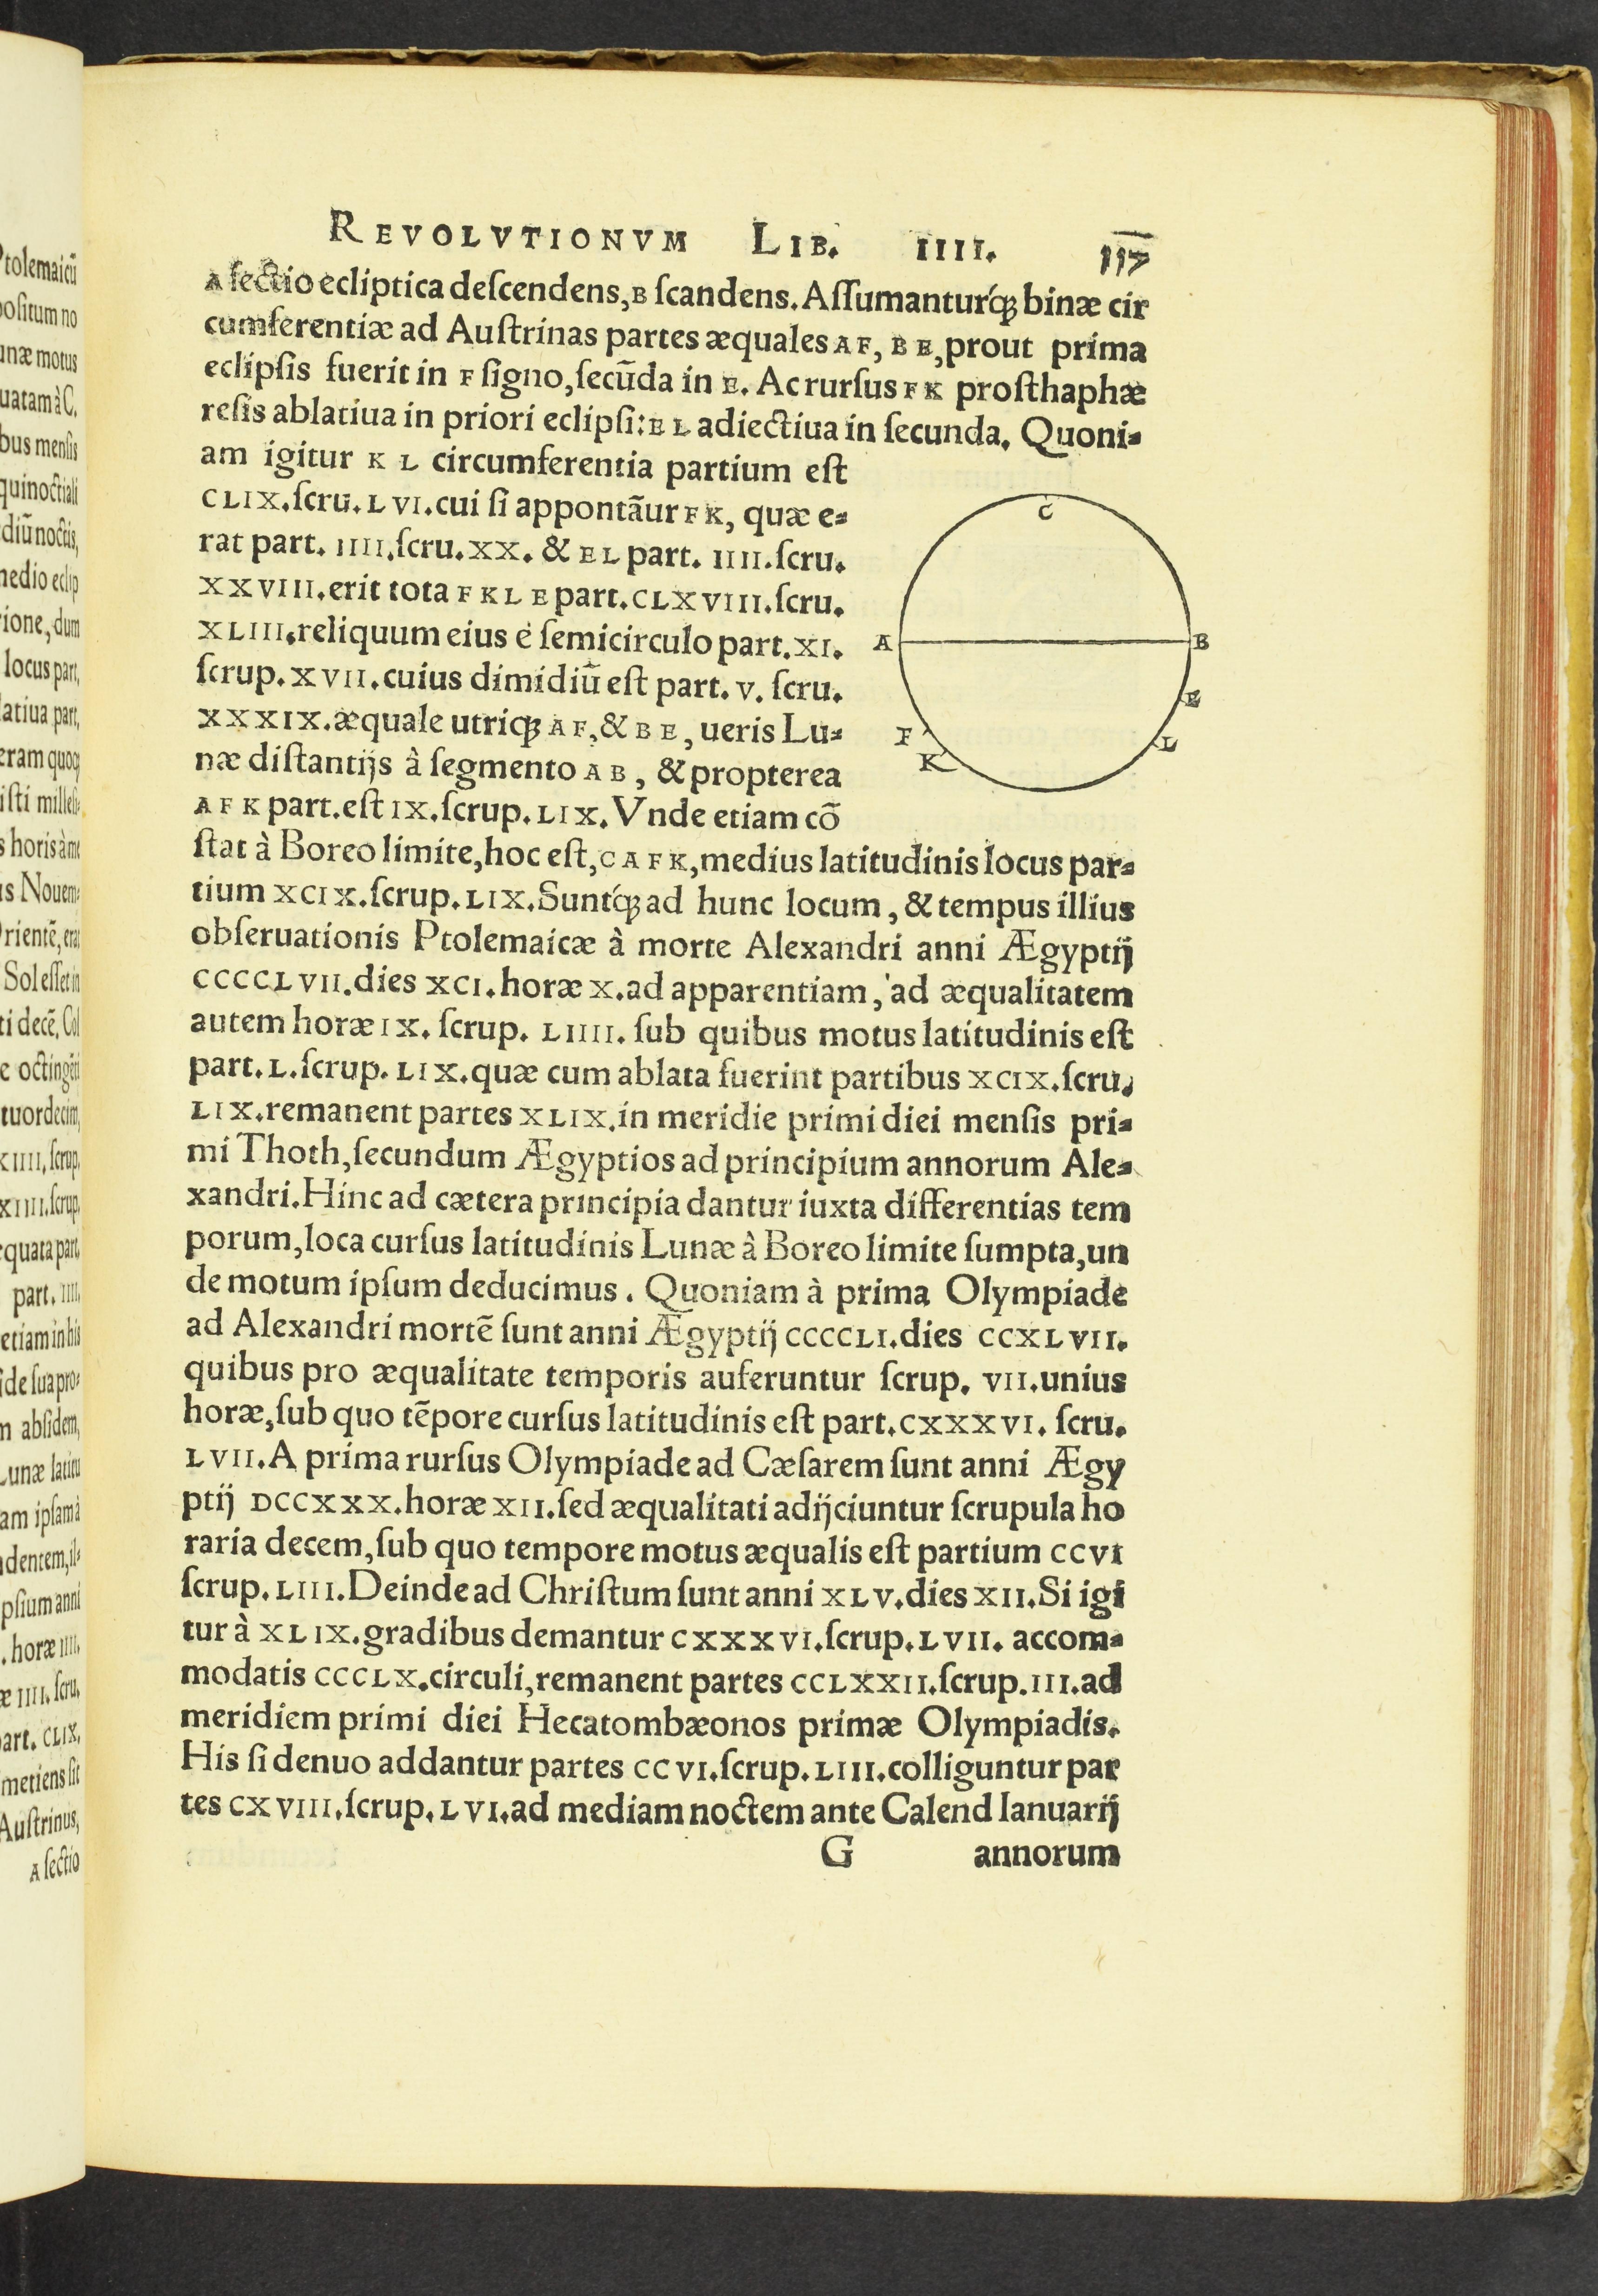 REVOLVTIONVM LIB. IIII. 117
A ſectio ecliptica deſcendens, B ſcandens. Aſſumanturq́ꝫ binæ cir
cumferentiæ ad Auſtrinas partes æquales AF, BE, prout prima
eclipſis fuerit in F ſigno, ſecūda in E. Ac rurſus FK proſthaphæ
reſis ablatiua in priori eclipſi: EL adiectiua in ſecunda. Quoni⸗
am igitur K L circumferentia partium eſt
CLIX. ſcru. LVI. cui ſi appontāur FK, quæ e⸗
rat part. IIII. ſcru. XX. & EL part. IIII. ſcru.
XXVIII. erit tota FKLE part. CLXVIII. ſcru.
XLIII. reliquum eius é ſemicirculo part. XI.
ſcrup. XVII. cuius dimidiū eſt part. V. ſcru.
XXXIX. æquale utriqꝫ AF, & BE, ueris Lu⸗
næ diſtantijs à ſegmento AB, & propterea
AFK part. eſt IX. ſcrup. LIX. Vnde etiam cō
ſtat à Boreo limite, hoc eſt, CAFK, medius latitudinis locus par⸗
tium XCIX. ſcrup. LIX. Suntq́ꝫ ad hunc locum, & tempus illius
obſeruationis Ptolemaicæ à morte Alexandri anni Ægyptij
CCCCLVII. dies XCI. horæ X. ad apparentiam, ad æqualitatem
autem horæ IX. ſcrup. LIIII. ſub quibus motus latitudinis eſt
part. L. ſcrup. LIX. quæ cum ablata fuerint partibus XCIX. ſcru.
LIX. remanent partes XLIX. in meridie primi diei menſis pri⸗
mi Thoth, ſecundum Ægyptios ad principium annorum Ale⸗
xandri. Hinc ad cætera principia dantur iuxta differentias tem
porum, loca curſus latitudinis Lunæ à Boreo limite ſumpta, un
de motum ipſum deducimus. Quoniam à prima Olympiade
ad Alexandri mortē ſunt anni Ægyptij CCCCLI. dies CCXLVII.
quibus pro æqualitate temporis auferuntur ſcrup. VII. unius
horæ, ſub quo tēpore curſus latitudinis eſt part. CXXXVI. ſcru.
LVII. A prima rurſus Olympiade ad Cæſarem ſunt anni Ægy
ptij DCCXXX. horæ XII. ſed æqualitati adijciuntur ſcrupula ho
raria decem, ſub quo tempore motus æqualis eſt partium CCVI
ſcrup. LIII. Deinde ad Chriſtum ſunt anni XLV. dies XII. Si igi
tur à XLIX. gradibus demantur CXXXVI. ſcrup. LVII. accom⸗
modatis CCCLX. circuli, remanent partes CCLXXII. ſcrup. III. ad
meridiem primi diei Hecatombæonos primæ Olympiadis.
His ſi denuo addantur partes CCVI. ſcrup. LIII. colliguntur par
tes CXVIII. ſcrup. LVI. ad mediam noctem ante Calend Ianuarij
G annorum
C
A
B
E
F
L
K
Ptolemaicū
poſitum no
unæ motus
uatam à C.
bus menſis
quinoctiali
diū noctis,
medio eclip
locus part,
eram quoqꝫ
horis à me
is Nouem⸗
Sol eſſet in
e octingēti
quata part
part. IIII.
etiam in his
de ſua pro⸗
m abſidem,
Lunæ latitu
am ipſam à
identem, il⸗
pſium anni
. horæ IIII.
æ IIII. ſcru.
art. CLIX.
metiens ſit
Auſtrinus,
A ſectio